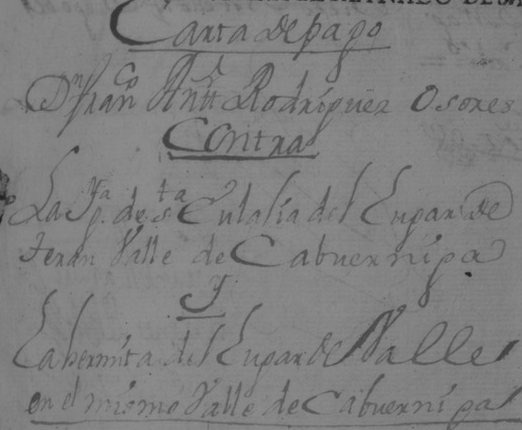 Carta de pago
Dn Franco Antt Rodriguez Osores
Contra
La Yga. de sta Eulalia del Lugar de
teran Valle de Cabuerniga
Y
La hermita del Lugar de Valle
en el mismo Valle de Cabuerniga